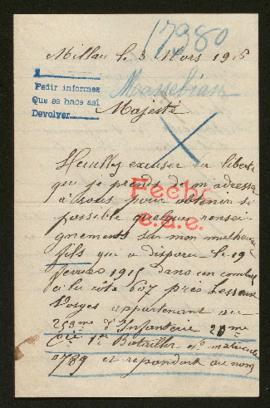 17380
Millau le 3 Mars 1915
Pedir informes
Que se hace así
Devolver
Massebiau
Majesté
Veuillez excuser la liberté
que je prends de m'adresser
à vous pour obtenir si
possible quelques rensei-
gnements sur mon malheureux
fils qui a disparu le 19
février 1915 dans un combat
à la côte 607 près Lesseux
Vosges appartenant au
253me d'Infanterie 20me
Cie 1er Bataillon No matricule
0789 et répondant au nom
Fecho
e.a.e.